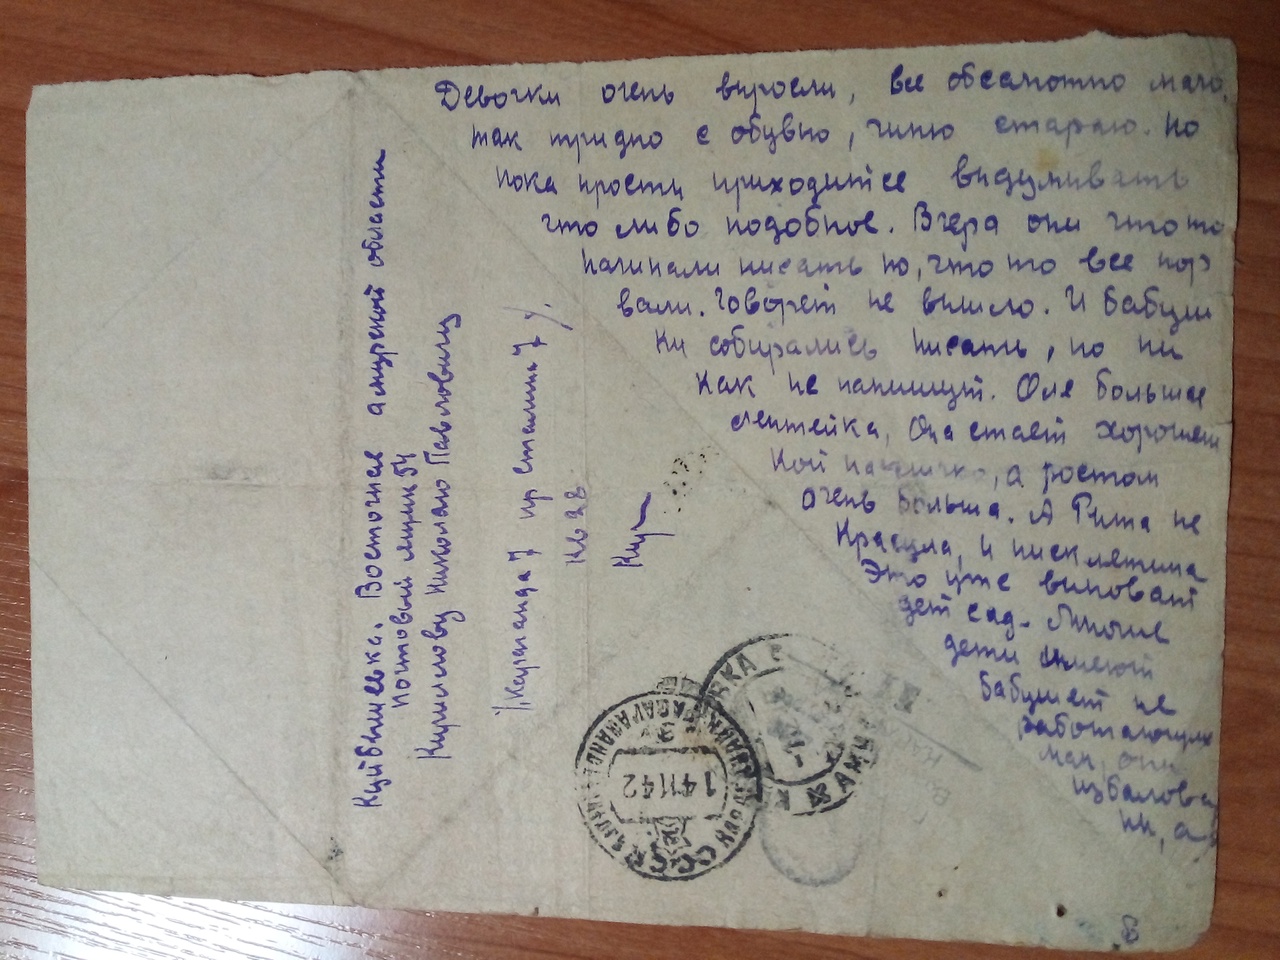 Девочки очень виросли, все обсалютно мало,
так тридно с обувью, чиню стараю. Но
пока прости приходитсе видумивать
что либо подобное. Вчера они что то
начинали писать но, что то все пор
вали. Говорет не вишло. И бабуш
ки собирались писать, но ни
как не напишут. Оле большае
лентейка, Она стает хорошен
кой, а ростом
очень больша. А Рита не
Красива, и писклятина
Это уже виноват
дет сад. Многие
дети имеют
бабушет не
работающих
мам, они
избалова
ни, а
Куйбышевка. Восточная амурской области
Почтовый ящик 54
Кирилову Николаю Павловичу
г. Караганда 7 пр Сталина 7
кв 28
Кир
СССР
14 11 42
АМУР
8